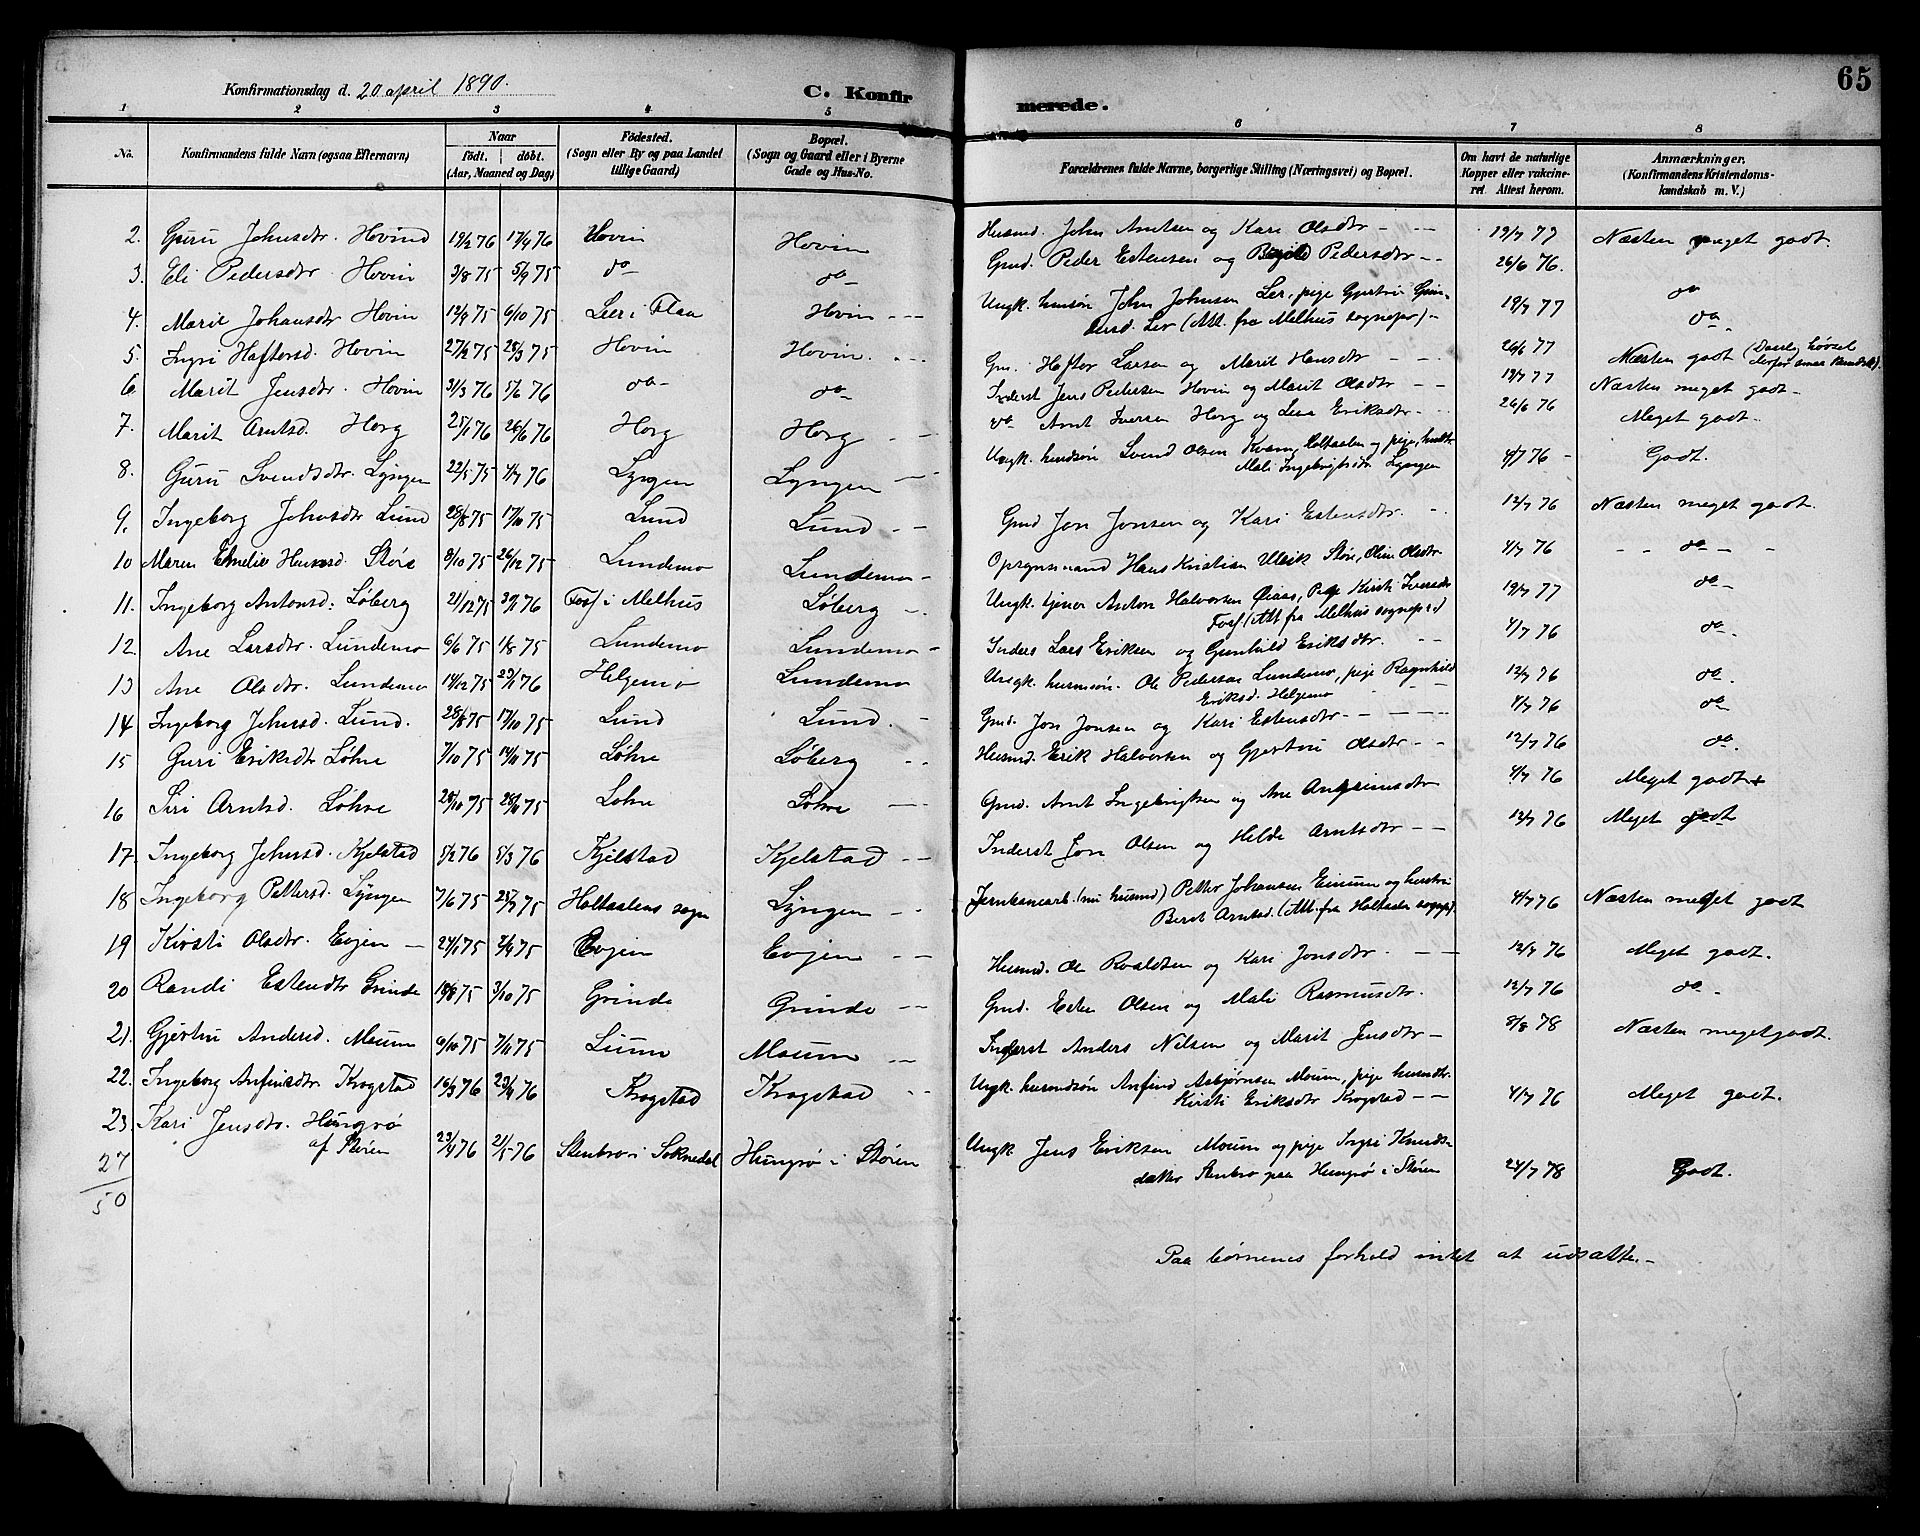 65
Konfirmationsdag d. 20 april 1890.
C. Konfirmerede.
1 2 3 4 5 6 7 8
No. Konfirmandens fulde Navn (ogsaa Efternavn) Naar født. døbt. (Aar, Maaned og Dag) Fødested. (Sogn eller By og paa Landet tillige Gaard) Bopæl. (Sogn og Gaard eller i Byerne Gade og Hus-No. Forældrenes fulde Navne, borgerlige Stilling (Næringsvei) og Bopæl. Om havt de naturlige Kopper eller vakcineret Attest herom. Anmærkninger. (Konfirmandens Kristendomskundskab m. V.)
2. Guru Johnsdtr. Hovind 19/2 76 17/4 76 Hovin Hovin Husmd. John Arntsen og Kari Olsdtr - - 19/7 77 Næsten meget godt.
3. Eli Pedersdtr Hovin 3/8 75 5/9 75 do do Gmd. Peder Estensen og Pedersdtr - - 26/6 76. do
4. Marit Johansdtr Hovin 12/9 75 6/10 75 Leer i Flaa Hovin - - Ungk. husm.søn John Johnsen Ler, pige Gjertru Gun-
dersd. Ler (Att. fra Melhus sognepr) - 19/7 77 do
5. Ingri Haftorsd. Hovin 27/2 75 28/3 75 Hovin Hovin. - - Gm. Haftor Larsen og Marit Hansdtr - - 26/6 77 Næsten godt (Daarlig hørsel derfor smaa kundsk).
6. Marit Jensdtr. Hovin 31/3 76 5/6 76 do - do Inderst Jens Pedersen Hovin og Marit Olsdtr - - 19/7 77 Næsten meget godt.
7. Marit Arntsd. Horg 25/1 76 26/6 76 Horg Horg - - do Arnt Iversen Horg og Eriksdtr - - 26/6 76 Meget godt.
8. Guru Svendsdtr. Lyngen 22/5 75 4/7 76 Lyngen Lyngen - - Ungk. husm.søn Svend Olsen Kvam, Holtaalen og pige,
Mali Ingebrigtsdtr Lyngen 4/7 76 - Godt.
9. Ingeborg Johnsdtr Lund 28/8 75 17/10 75 Lund Lund - - Gmd Jon Jonsen og Kari Estensdtr. - - 12/7 76 Næsten meget godt.
10 Maren Emelie Hansd. Støre 8/10 75 26/12 75 Lundemo Lundemo - Opsynsmand Hans Kristian Ulrik Støre, Oline Olsdtr 4/7 76 - - do - - -
11. Ingeborg Antonsd: Løberg 21/12 75 30/1 76 Foss i Melhus Løberg - Ungk. tjener Anton Halvorsen Øiaas, Pige Kirsti Iversdtr
Foss (Att fra Melhus sognepr) 19/7 77 do -
12 Ane Larsdtr. Lundemo 6/6 75 1/8 75 Lundemo Lundemo - Inders Lars Eriksen og Gunhild Eriksdtr. - - 4/7 76 do -
13 Ane Olsdtr. Lundemo 14/12 75 23/1 76 Helgemo Lundemo Ungk. husm.søn. Ole Pedersen Lundemo, pige Ragnhild
Eriksd. Helgemo 12/7 76 do -
14 Ingeborg Johnsd. Lund. 28/8 75 17/10 75 Lund Lund. - Gmd. Jon Jonsen og Kari Estensdtr - - - 4/7 76 do
15 Guri Eriksdtr Løhre 7/10 75 14/11 75 Løhre Løberg - - Husmd. Erik Halvorsen og Gjertru Olsdtr - - 12/7 76 do.
16 Siri Arntsd. Løhre 20/10 75 28/11 75 Løhre Løhre - - Gmd. Arnt Ingebrigtsen og Ane Anfinnsdtr 4/7 76 Meget godt
17. Ingeborg Johnsd. Kjelstad 5/2 76 5/3 76 Kjelstad Kjelstad - - Inderst Jon Olsen og Hilde Arntsdtr - - 12/7 76 Meget godt
18 Ingeborg Pettersd. Lyngen 7/6 75 25/7 75 Holtaalens sogn Lyngen - - Jernbanearb. (nu husmd) Petter Johansen Einum og hustru
Berit Arntsd. (Att. fra Holtaalen sognepr). 4/7 76 Næsten meget godt
19 Kirsti Olsdtr. Evjen - 24/1 75 2/4 75 Evjen Evjen - - Husmd. Ole Roaldsen og Kari Jonsdtr. - - 12/7 76 Meget godt.
20 Randi Estensdtr Grinde 18/8 75 3/10 75 Grinde Grinde - - Gmd. Esten Olsen og Mali Rasmusdtr. 12/7 76 do -
21. Gjertru Andersd. Moum 9/10 75 7/11 75 Luum Moum - - Inderst Anders Nilsen og Marit Jensdtr - 8/8 78 Næsten meget godt.
22. Ingeborg Anfinsdtr. Krogstad 16/3 76 23/4 76 Krogstad Krogstad - - Ungk. husmdsøn Anfind Asbjørnsen Moum, pige husmdtr.
Kirsti Eriksdtr Krogstad - - 4/7 76 Meget godt.
23. Kari Jensdtr. Hungrø
af Støren 23/4 76 21/5 76 Stenbro i Soknedal Hungrø i Støren Ungk Jens Eriksen Moum og pige Ingri Knuds-
datter Stenbro paa Hungrø i Støren 24/7 78 Godt.
27
50
Paa børnenes forhold intet at udsætte. -